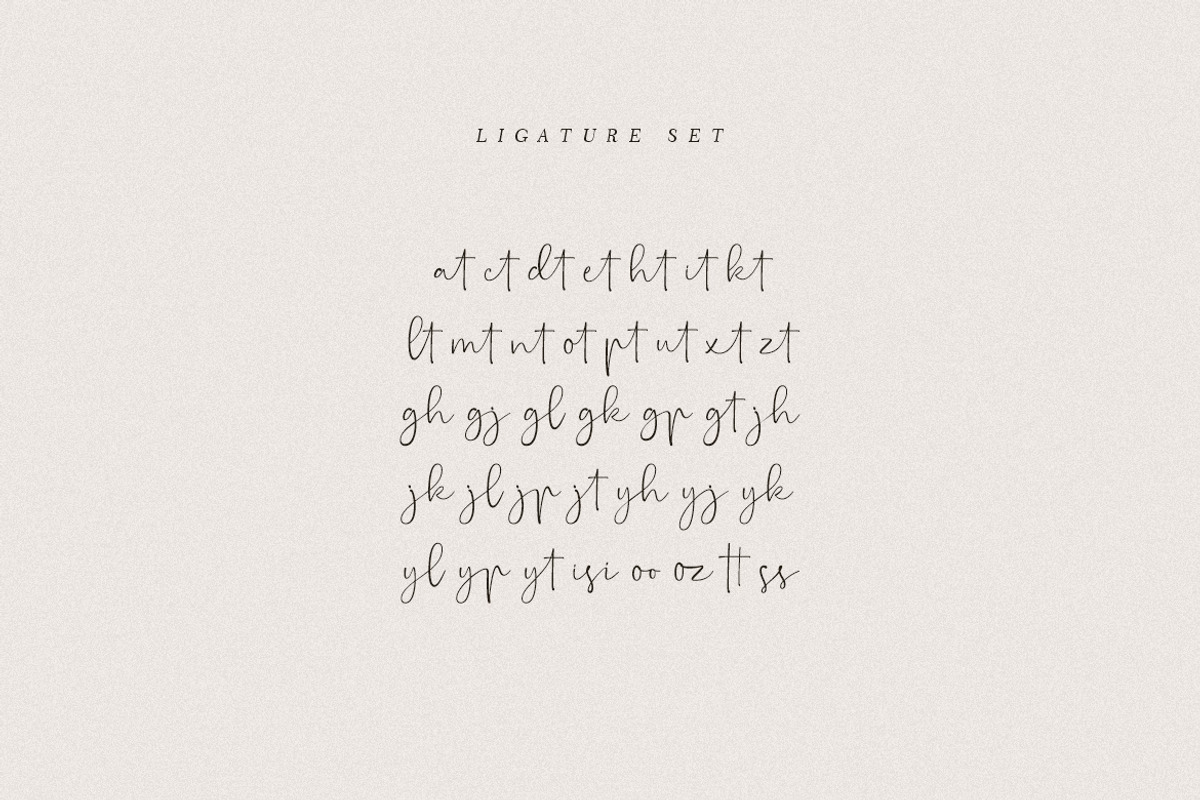 LIGATURE SET
at ct dt et ht it kt
lt mt nt ot pt ut xt zt
gh gj gl gk gp gt jh
jk jl jp jt yh yj yk
yl yp yt isi oo oz tt ss